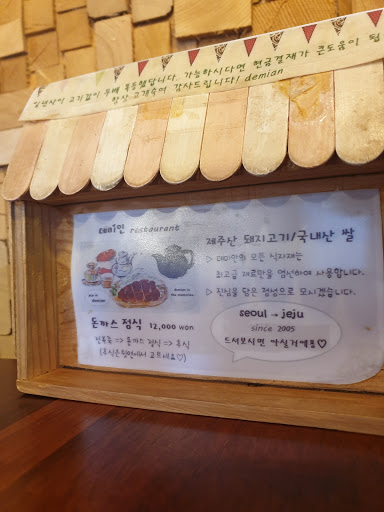 일년사이 고기값이 두배 폭등했답니다. 가능하시다면 현금결재가 큰도움이 됨
항상 고개숙여 감사드립니다! demian
데미안 restaurant
제주산 돼지고기/국내산 쌀
▷ 데미안의 모든 식자재는
최고급 재료만을 엄선하여 사용합니다.
▷ 진심을 담은 정성으로 모시겠습니다.
돈까스 정식 12,000 won
전복죽 => 돈까스 정식 => 후식
(후식은 뒷면에서 고르세요♡)
seoul → jeju
since 2005
드셔보시면 아실거예용♡